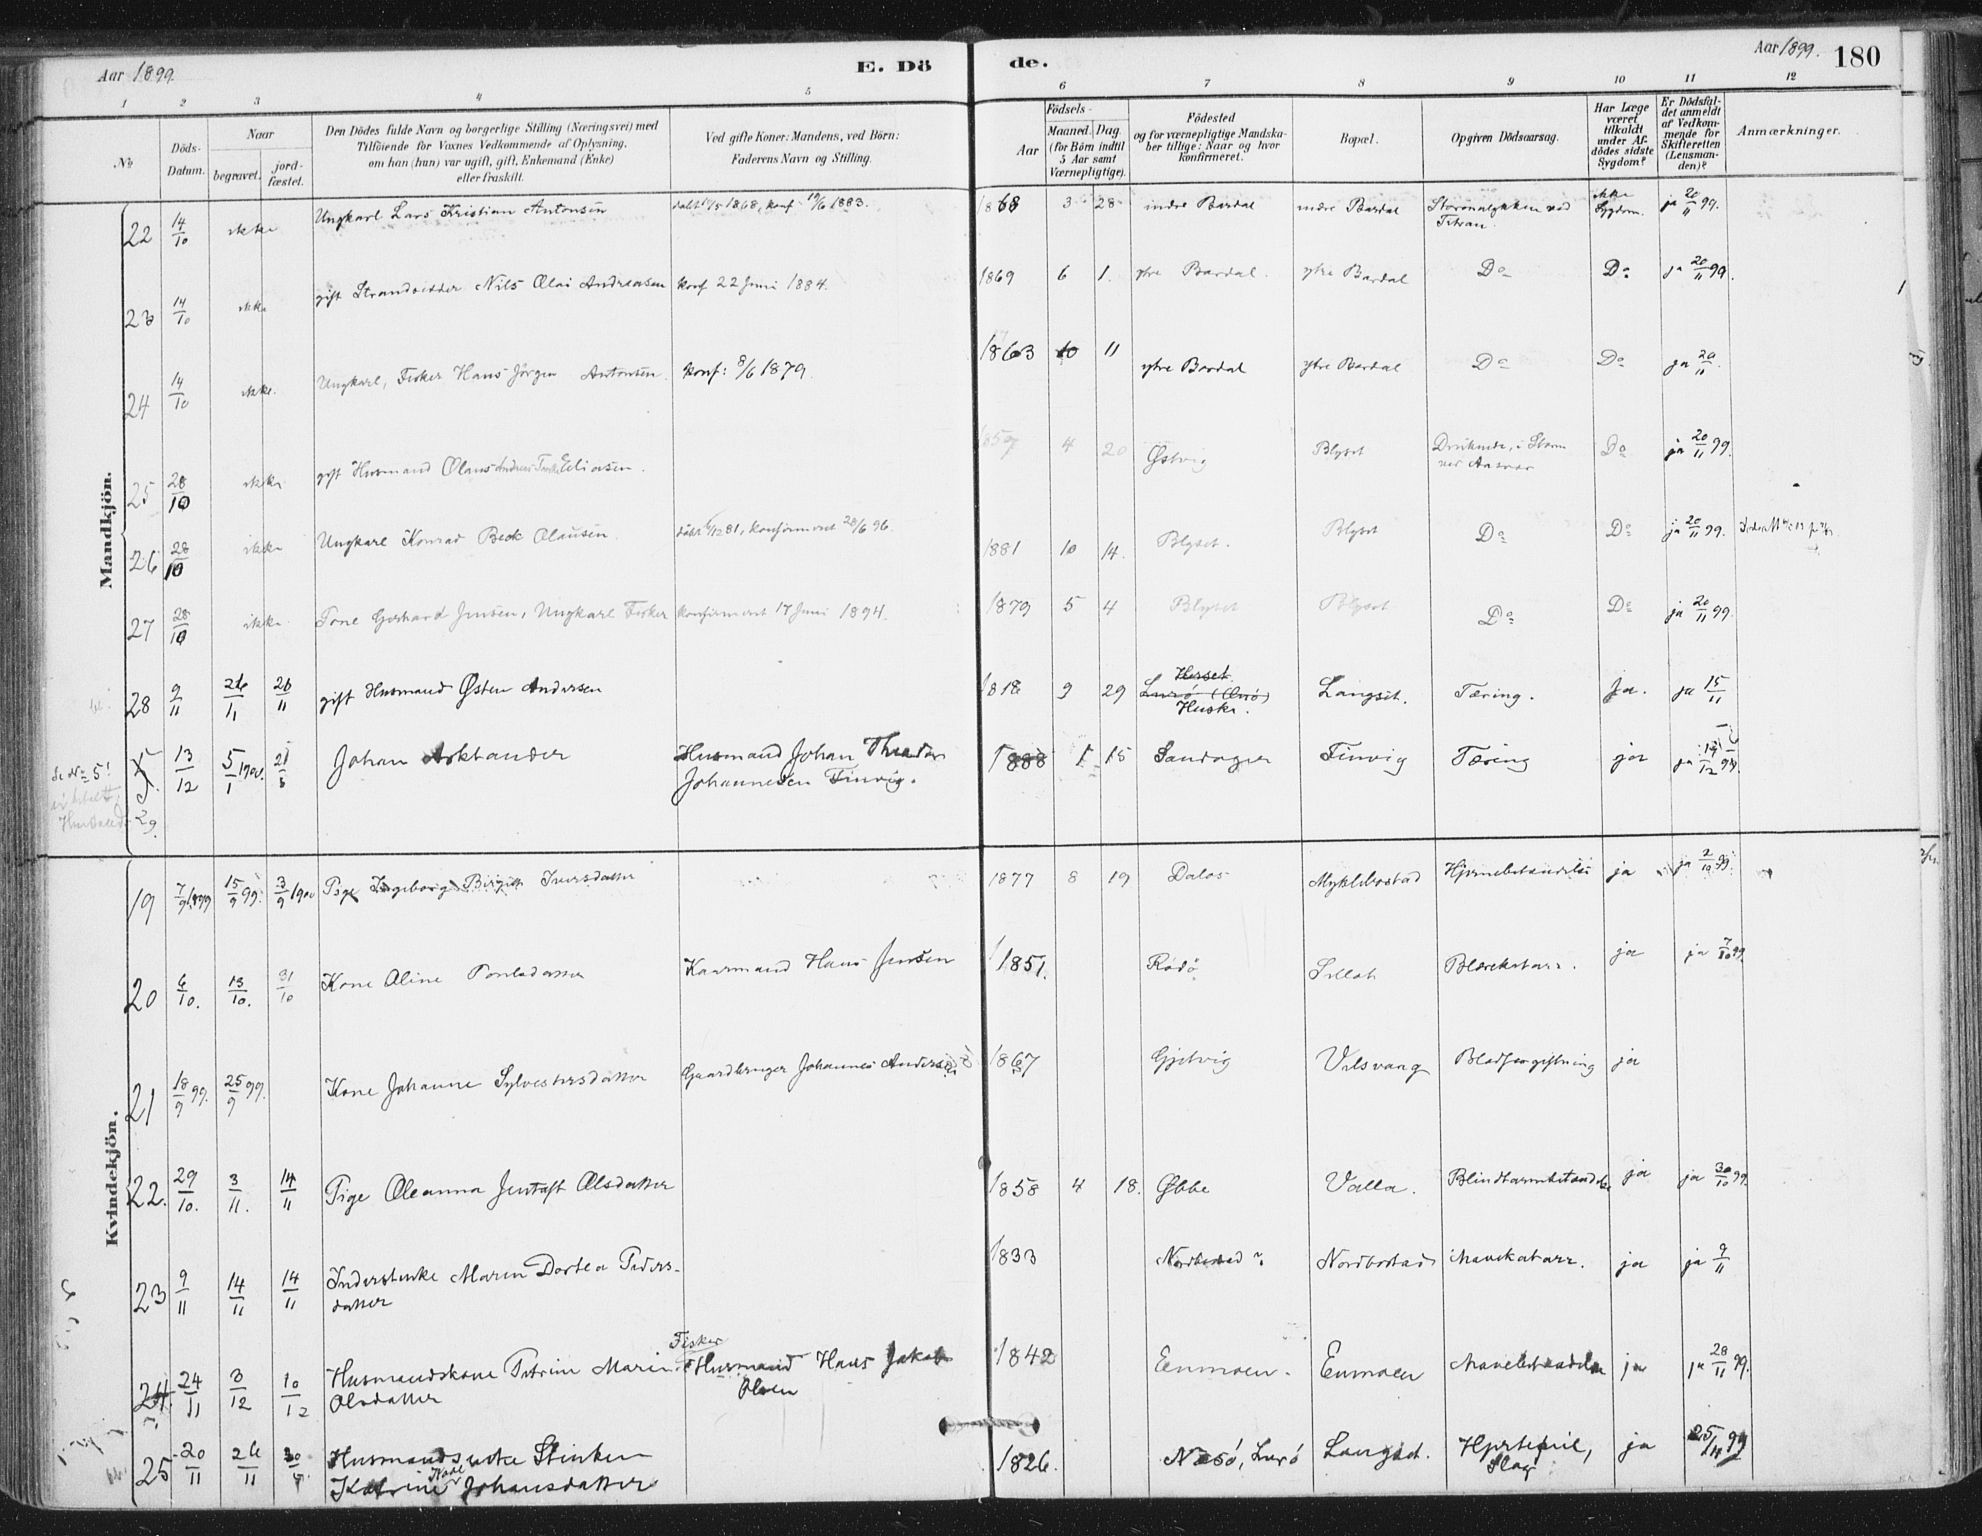 Aar 1899.
E. Dö
de.
Aar 1899.
180
1 2 3 4 5 6 7 8 9 10 11 12
No
Döds-Datum.
Naar
begravet.
jord-fæstet.
Den Dödes fulde Navn og borgerlige Stilling (Næringsvei) med
Tilföiende for Voxnes Vedkommende af Oplysning,
om han (hun) var ugift, gift, Enkemand (Enke)
eller fraskilt.
Ved gifte Koner: Mandens, ved Börn:
Faderens Navn og Stilling.
Födsels-
Aar
Maaned. Dag.
(for Börn indtil
5 Aar samt
Værnepligtige).
Födested
og for værnepligtige Mandska-
ber tillige: Naar og hvor
konfirmeret.
Bopæl.
Opgiven Dödsaarsag.
Har Læge
været
tilkaldt
under Af-
dödes sidste
Sygdom?
Er Dödsfal-
det anmeldt
af Vedkom-
mende for
Skifteretten
(Lensman-
den)?
Anmærkninger.
Mandkjön.
22 14/10 ikke Ungkarl Lars Kristian Antonsen 1868, konf. 1883. 1868 3 28 indre Bardal indre Bardal Stormulykken ved Titran ikke Sygdom. ja 20/11 99.
23 14/10 ikke gift Strandsidder Nils Olai Andreasen konf 22 Juni 1884. 1869 6 1. ytre Bardal. ytre Bardal Do Do ja 20/11 99.
24 14/10 ikke. Ungkarl, Fisker Hans Jörgen Antonsen. konf: 8/6 1879. 1863 10 11 ytre Bardal ytre Bardal Do Do ja 20/11.
25 28/10 ikke gift Husmand Olaus Andreas Eliasen. 4 20 Østvig Blyset Druknede, i Storm ved Aasvær Do ja 20/11 99.
26 28/10 ikke Ungkarl Konrad Beck Olausen. döbt 81, konfirmeret 28/6 96. 1881 10 14. Blyset. Blyset Do Do ja 20/11 99.
27 28/10 ikke Tone Gerhard Jensen, Ungkarl Fisker konfirmeret 17 Juni 1894. 1879 5 4 Blyset Blyset Do Do ja 20/11 99.
28 9/11 26/11 26/11 gift Husmand Østen Andersen 1818 9 29 Herset. Lurö Huske. Langset. Tæring. Ja. ja 15/11
se No 5!
29. 13/12 5/1 1900. Johan Arkhander Husmand Johan Theodor Johannesen Finvig. 1888 1 15 Sandager Finvig Tæring ja ja
Kvindekjön.
19 7/9 1899 15/9 99. 3/9 1900 Pige Ingeborg Birgitte Iversdatter 1877 8 19 Dalos Myklebostad Hjernebetændelse ja ja 2/10 99.
20 6/10. 13/10. 31/10 Kone Aline Poulsdatter Kaarmand Hans Jensen 1851. Rödö Sellat Blærekatarr. ja ja 7/10 99.
21 18/9 99. 25/9 99. Kone Johanne Sylvestersdatter Gaardbruger Johannes Andersen 1867 Gjelvig Valsvaag Blodforgiftning ja
22. 29/10. 3/11. 14/11 Pige Oleanna Jentoft Olsdatter 1858 4 18. Øbbe Valla. Blindtarmbetændelse ja ja 30/10 99.
23 9/11 14/11 14/11 Inderstenke Maren Dortea Peders-datter 1833 Nordbostad? Nordbostad Mavekatarr. ja ja 9/11
24. 24/11 3/12 10/12 Husmandskone Petrine Marie Olsdatter Fisker Husmand Hans Jakob Olsen 1842 Enmoen. Enmoen Mavebetændelse ja ja 28/11 99.
25 20/11 26/11 30 Husmandsenke Stinken Katrine Johansdatter 1826. Næsö, Lurö Langset. Hjertefeil, Slag ja 25/11 99